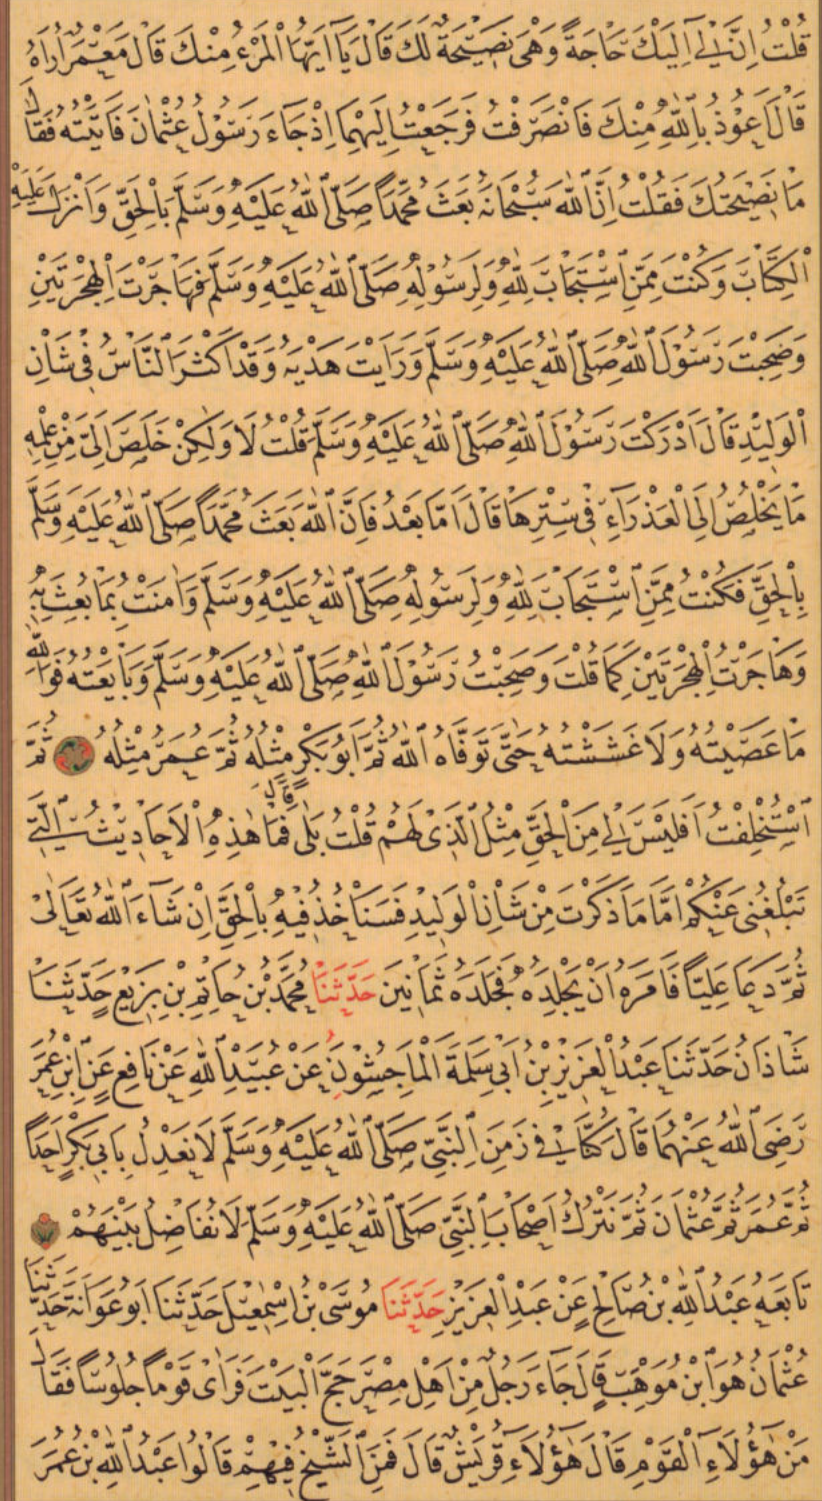 قُلْتُ اِنَّ لِي اِلَيْكَ حَاجَةً وَهْيَ نَصِيْحَةٌ لَكَ قَالَ يَا اَيُّهَا الْمَرْءُ مِنْكَ قَالَ مَعْمَرٌ اُرَاهُ
قَالَ اَعُوْذُ بِاللّٰهِ مِنْكَ فَانْصَرَفْتُ فَرَجَعْتُ اِلَيْهِمَا اِذْ جَاءَ رَسُوْلُ عُثْمَانَ فَاَتَيْتُهُ فَقَالَ
مَا نَصِيْحَتُكَ فَقُلْتُ اِنَّ اللّٰهَ سُبْحَانَهُ بَعَثَ مُحَمَّدًا صَلَّى اللّٰهُ عَلَيْهِ وَسَلَّمَ بِالْحَقِّ وَاَنْزَلَ عَلَيْهِ
الْكِتَابَ وَكُنْتَ مِمَّنِ اسْتَجَابَ لِلّٰهِ وَلِرَسُوْلِهِ صَلَّى اللّٰهُ عَلَيْهِ وَسَلَّمَ فَهَاجَرْتَ الْهِجْرَتَيْنِ
وَصَحِبْتَ رَسُوْلَ اللّٰهِ صَلَّى اللّٰهُ عَلَيْهِ وَسَلَّمَ وَرَاَيْتَ هَدْيَهُ وَقَدْ اَكْثَرَ النَّاسُ فِي شَاْنِ
الْوَلِيْدِ قَالَ اَدْرَكْتَ رَسُوْلَ اللّٰهِ صَلَّى اللّٰهُ عَلَيْهِ وَسَلَّمَ قُلْتُ لَا وَلٰكِنْ خَلَصَ اِلَيَّ مِنْ عِلْمِهِ
مَا يَخْلُصُ اِلَى الْعَذْرَاءِ فِي سِتْرِهَا قَالَ اَمَّا بَعْدُ فَاِنَّ اللّٰهَ بَعَثَ مُحَمَّدًا صَلَّى اللّٰهُ عَلَيْهِ وَسَلَّمَ
بِالْحَقِّ فَكُنْتُ مِمَّنِ اسْتَجَابَ لِلّٰهِ وَلِرَسُوْلِهِ صَلَّى اللّٰهُ عَلَيْهِ وَسَلَّمَ وَاٰمَنْتُ بِمَا بُعِثَ بِهِ
وَهَاجَرْتُ الْهِجْرَتَيْنِ كَمَا قُلْتَ وَصَحِبْتُ رَسُوْلَ اللّٰهِ صَلَّى اللّٰهُ عَلَيْهِ وَسَلَّمَ وَبَايَعْتُهُ فَوَاللّٰهِ
مَا عَصَيْتُهُ وَلَا غَشَشْتُهُ حَتّٰى تَوَفَّاهُ اللّٰهُ ثُمَّ اَبُو بَكْرٍ مِثْلُهُ ثُمَّ عُمَرُ مِثْلُهُ ثُمَّ
اسْتُخْلِفْتُ اَفَلَيْسَ لِي مِنَ الْحَقِّ مِثْلُ الَّذِي لَهُمْ قُلْتُ بَلٰى قَالَ فَمَا هٰذِهِ الْاَحَادِيْثُ الَّتِي
تَبْلُغُنِي عَنْكُمْ اَمَّا مَا ذَكَرْتَ مِنْ شَاْنِ الْوَلِيْدِ فَسَنَاْخُذُ فِيْهِ بِالْحَقِّ اِنْ شَاءَ اللّٰهُ تَعَالٰى
ثُمَّ دَعَا عَلِيًّا فَاَمَرَهُ اَنْ يَجْلِدَهُ فَجَلَدَهُ ثَمَانِيْنَ حَدَّثَنَا مُحَمَّدُ بْنُ حَاتِمِ بْنِ بَزِيْعٍ حَدَّثَنَا
شَاذَانُ حَدَّثَنَا عَبْدُ الْعَزِيْزِ بْنُ اَبِي سَلَمَةَ الْمَاجِشُوْنُ عَنْ عُبَيْدِ اللّٰهِ عَنْ نَافِعٍ عَنِ ابْنِ عُمَرَ
رَضِيَ اللّٰهُ عَنْهُمَا قَالَ كُنَّا فِي زَمَنِ النَّبِيِّ صَلَّى اللّٰهُ عَلَيْهِ وَسَلَّمَ لَا نَعْدِلُ بِاَبِي بَكْرٍ اَحَدًا
ثُمَّ عُمَرَ ثُمَّ عُثْمَانَ ثُمَّ نَتْرُكُ اَصْحَابَ النَّبِيِّ صَلَّى اللّٰهُ عَلَيْهِ وَسَلَّمَ لَا نُفَاضِلُ بَيْنَهُمْ
تَابَعَهُ عَبْدُ اللّٰهِ بْنُ صَالِحٍ عَنْ عَبْدِ الْعَزِيْزِ حَدَّثَنَا مُوسَى بْنُ اِسْمٰعِيْلَ حَدَّثَنَا اَبُو عَوَانَةَ حَدَّثَنَا
عُثْمَانُ هُوَ ابْنُ مَوْهَبٍ قَالَ جَاءَ رَجُلٌ مِنْ اَهْلِ مِصْرَ حَجَّ الْبَيْتَ فَرَاٰى قَوْمًا جُلُوْسًا فَقَالَ
مَنْ هٰؤُلَاءِ الْقَوْمِ قَالَ هٰؤُلَاءِ قُرَيْشٌ قَالَ فَمَنِ الشَّيْخُ فِيْهِمْ قَالُوا عَبْدُ اللّٰهِ بْنُ عُمَرَ